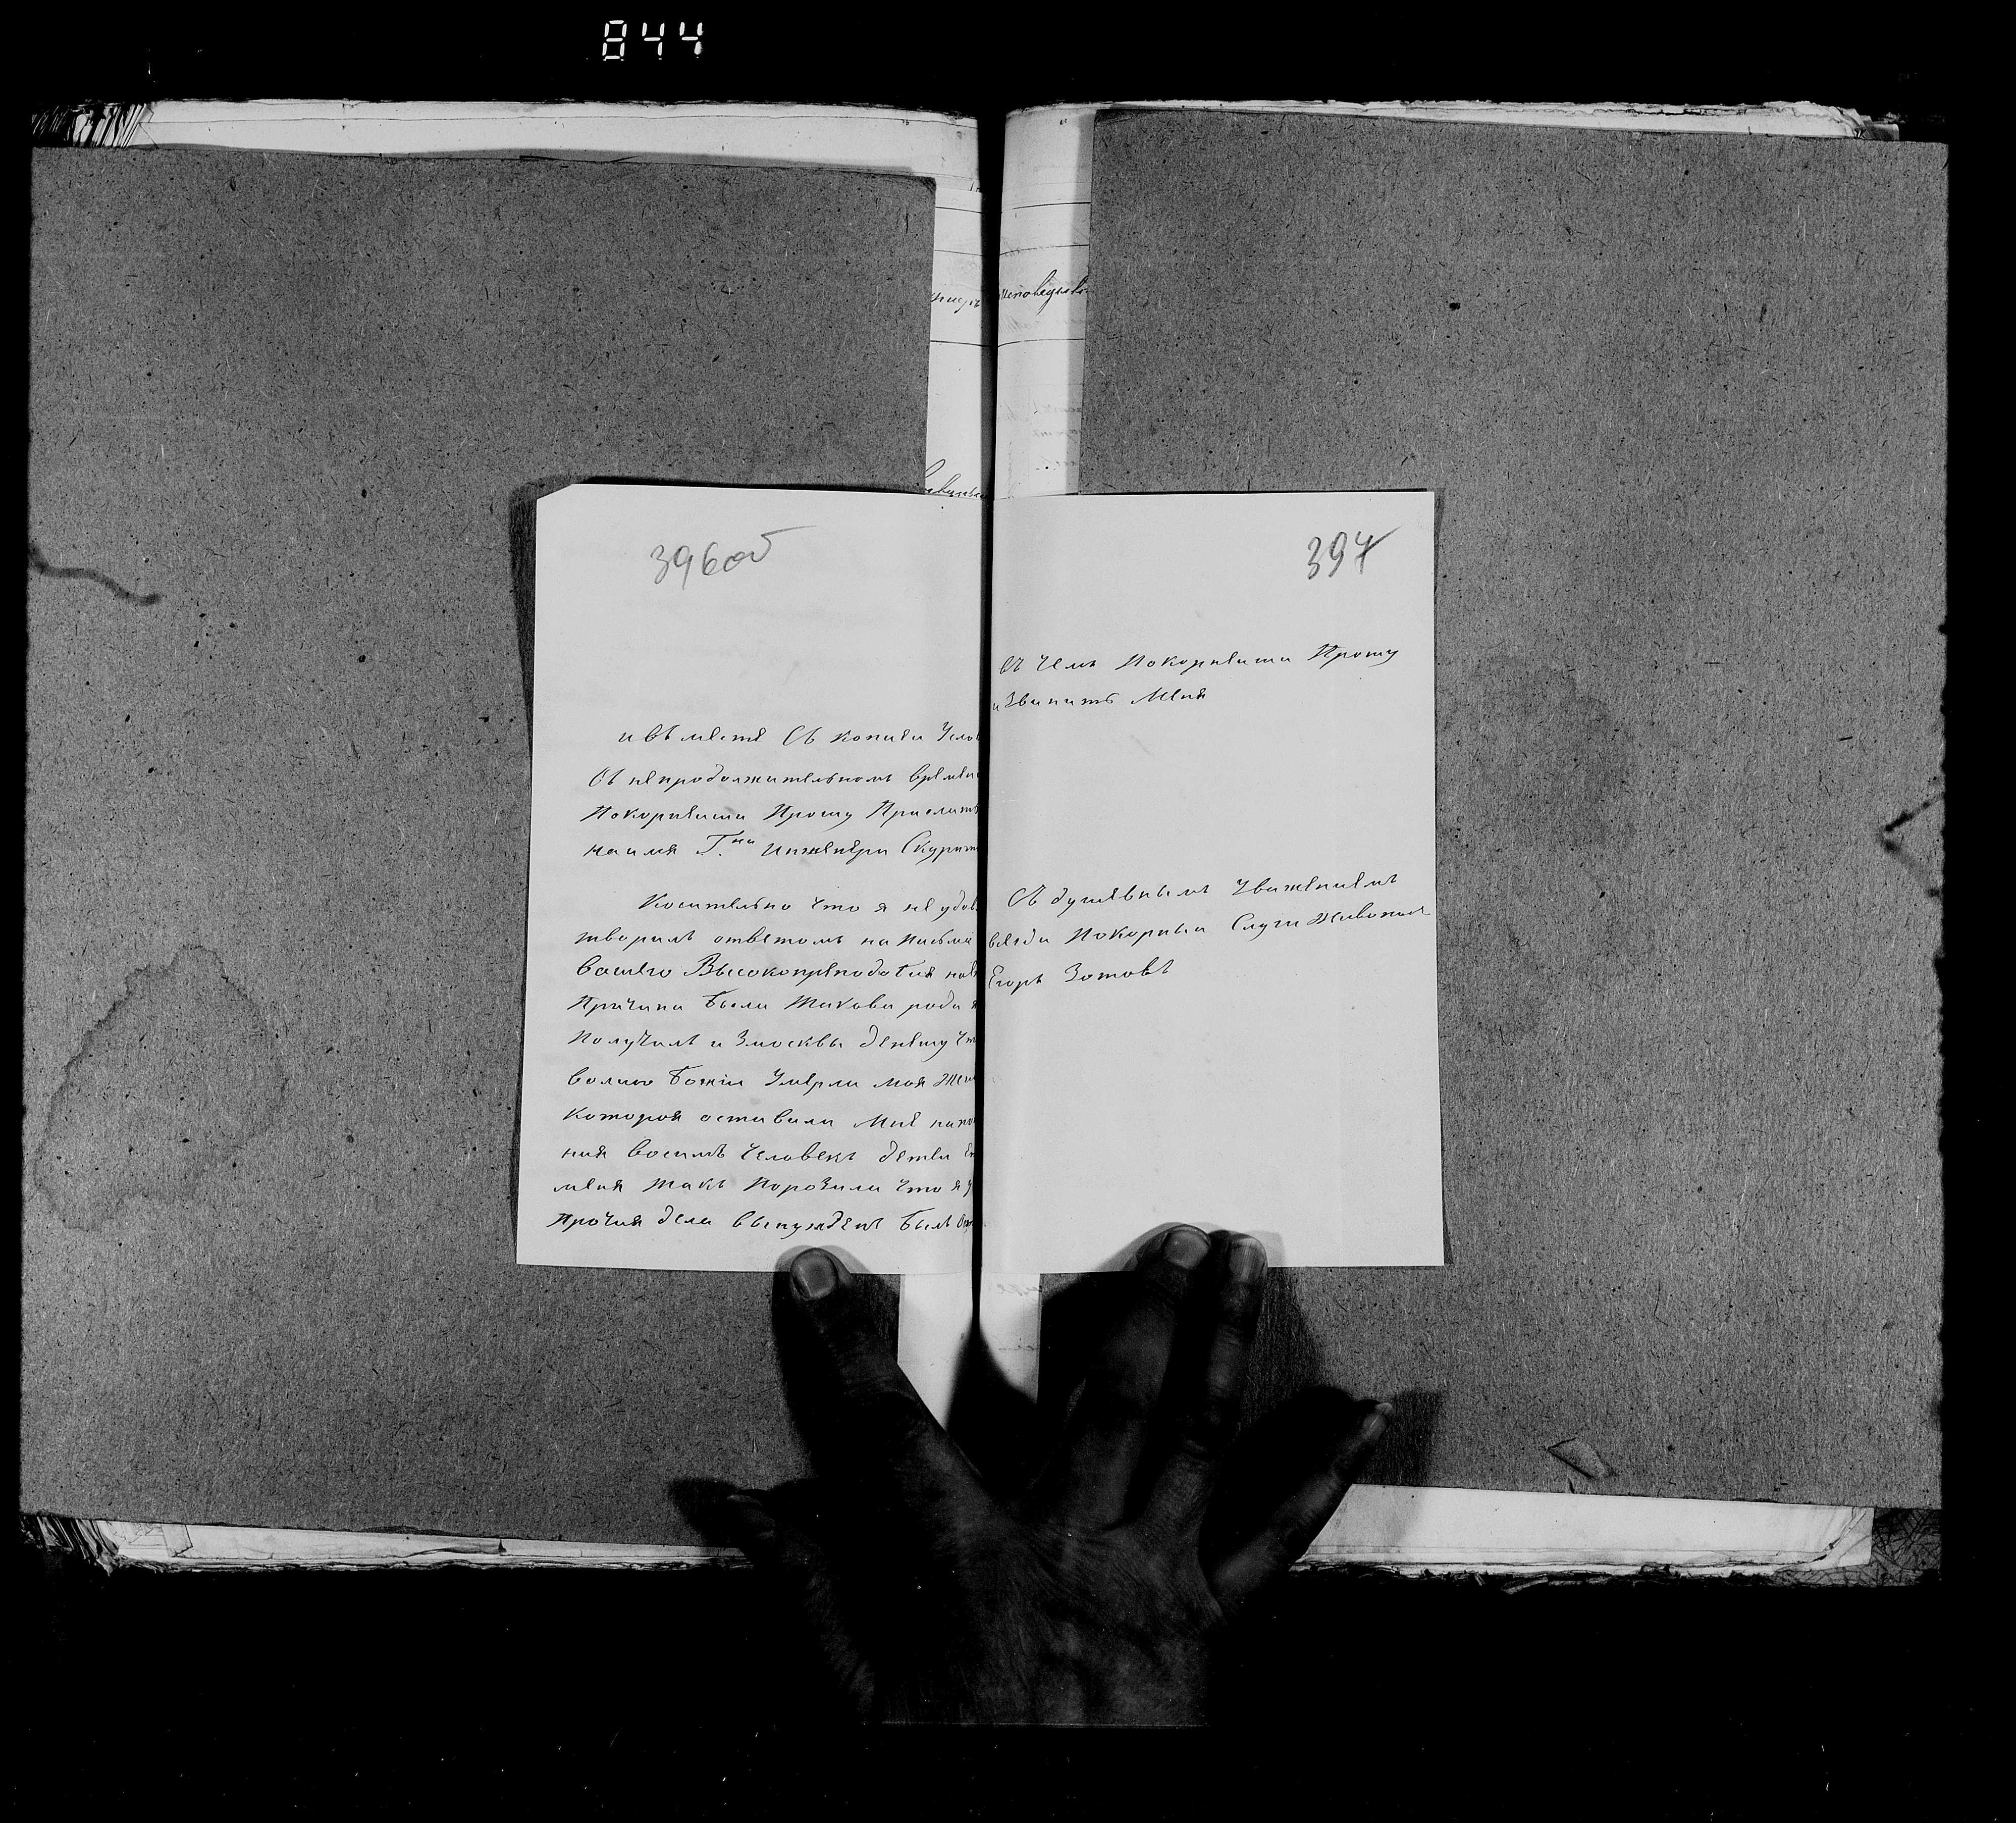 844
396об
ивъ месте Съ копиеи Услов
Въ непродолжительномъ времен
Покорнеише Прошу Прислать
на имя Г.на инженера Скурат
Косательно что я не удов
творилъ ответомъ на письма
вашего Высокопреподобия
Причина была такова рода я
Получилъ и Змосквы депешу чт
волию Божии Умерла моя Жен
которая оставила мне
ния восимъ человекъ детеи
меня такъ Поразила что я
прочия дела вынужденъ былъ
397
въ чемъ Покорнеише Прошу
изВинить Меня
Съ душевнымъ Уважениемъ
всегда Покорныи Слуга Живопис
Егоръ Зотовъ